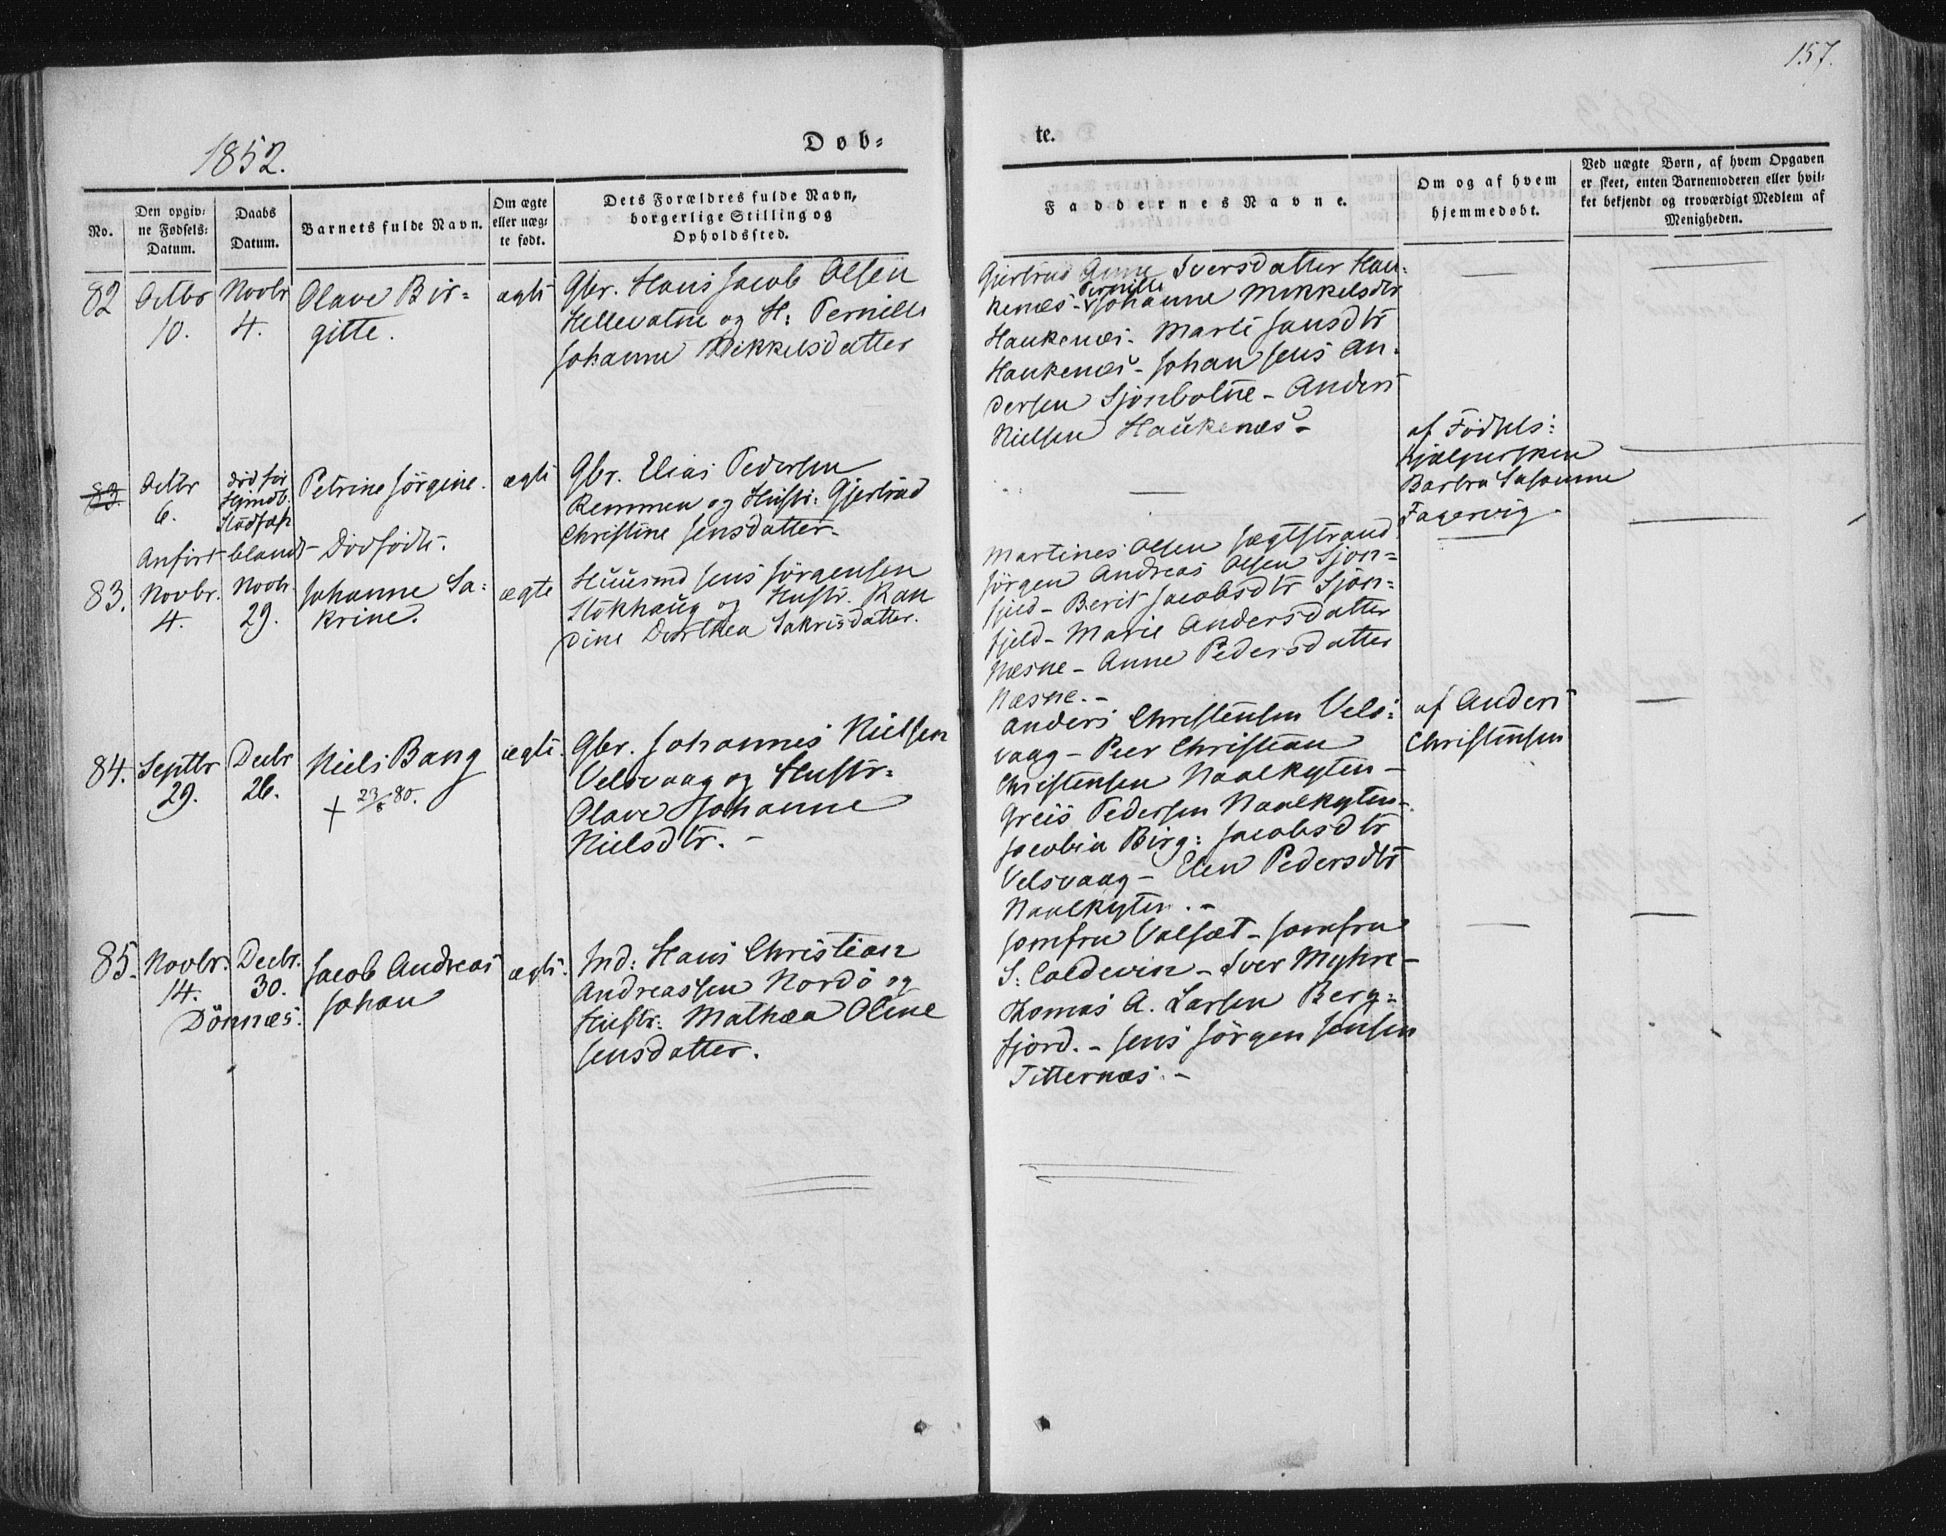 157.
1852.
Døb-
te.
No.
Den opgiv-
ne Fødsels-
Datum.
Daabs
Datum.
Barnets fulde Navn.
Om ægte
eller uæg-
te født.
Dets Forældres fulde Navn,
borgerlige Stilling og
Opholdssted.
Faddernes Navne.
Om og af hvem
hjemmedøbt.
Ved uægte Børn, af hvem Opgaven
er skeet, enten Barnemoderen eller hvil-
ket bekjendt og troværdigt Medlem af
Menigheden.
82
Octbr
10.
Novbr
4.
Olave Bir-
gitte.
ægte
Gbr. Hans Jacob Olsen
Hellevatne og H: Pernille
Johanne Mikkelsdatter
Gjertrud Anne Iversdatter Hau-
kenæs - Pernille Johanne Mikkelsdtr
Haukenæs - Marte Jansdtr
Haukenæs - Johan Jens An-
dersen Sjonbotne - Anders
Nielsen Haukenæs -
83.
Octbr
6.
død før
Petrine Jörgine.
ægte
Gbr. Elias Pedersen
Remmen og Hustr: Gjertrud
Christine Jensdatter -
af Födsels-
hjælpersken
Barbra Susanne
Fagervig -
Anført blandt Dödfödte.
83.
Novbr.
4.
Novbr.
29.
Johanne Sa-
krine.
ægte
Huusmd Jens Jörgensen
Stokhaug og Hustr. Ran
dine Dorthea Sakrisdatter.
Martines Olsen Jægtstrand
Jörgen Andreas Olsen Sjon-
fjeld - Berit Jacobsdtr Sjon-
fjeld - Marie Andersdatter
Næsne - Anne Pedersdatter
Næsne. -
84.
Septbr
29.
Decbr
26.
Niels Bang
+ 23/8 80.
ægte.
Gbr. Johannes Nielsen
Velsvaag og Hustr.
Olave Johanne
Nielsdtr. -
Anders Christensen Vels-
vaag - Peer Christian
Christensen Naalkyten -
Greis Pedersen Naalkyten -
Jacobia Birg: Jacobsdtr
Velsvaag - Elen Pedersdtr
Naalkyten. -
af Anders
Christensen
85.
Novbr.
14.
Decbr.
30.
Jacob Andreas
Johan
Dönnæs.
ægte.
Ind: Hans Christian
Andreassen Nordö og
Hustr: Mathea Oline
Jensdatter.
Jomfru Valsæt - Jomfru
S: Coldevin - Iver Myhre -
Thomas A. Larsen Berg-
fjord. - Jens Jörgen Jensen
Titternæs. -